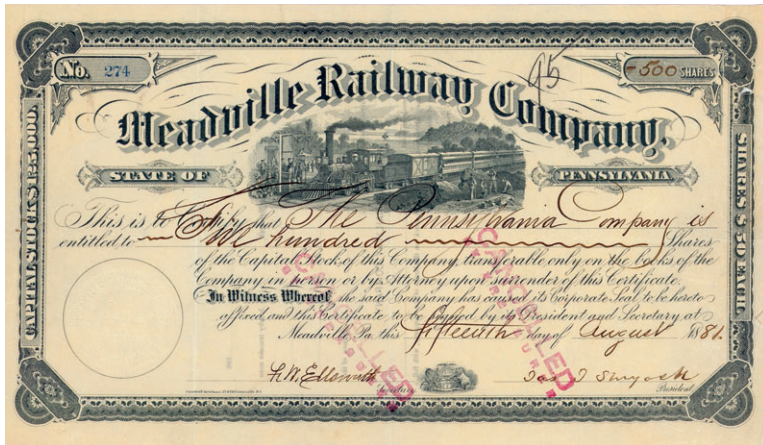 No. 274
95
500 SHARES
Meadville Railway Company.
STATE OF PENNSYLVANIA
CAPITAL STOCK $125,000.
SHARES $50 EACH.
This is to Certify that The Pennsylvania Company is
entitled to Five hundred Shares
of the Capital Stock of this Company, transferable only on the books of the
Company in person or by Attorney upon surrender of this Certificate.
In Witness Whereof the said Company has caused its Corporate Seal to be hereto
affixed, and this Certificate to be signed by its President and Secretary at
Meadville Pa this fifteenth day of August 1881.
CANCELLED
CANCELLED
Secretary
President